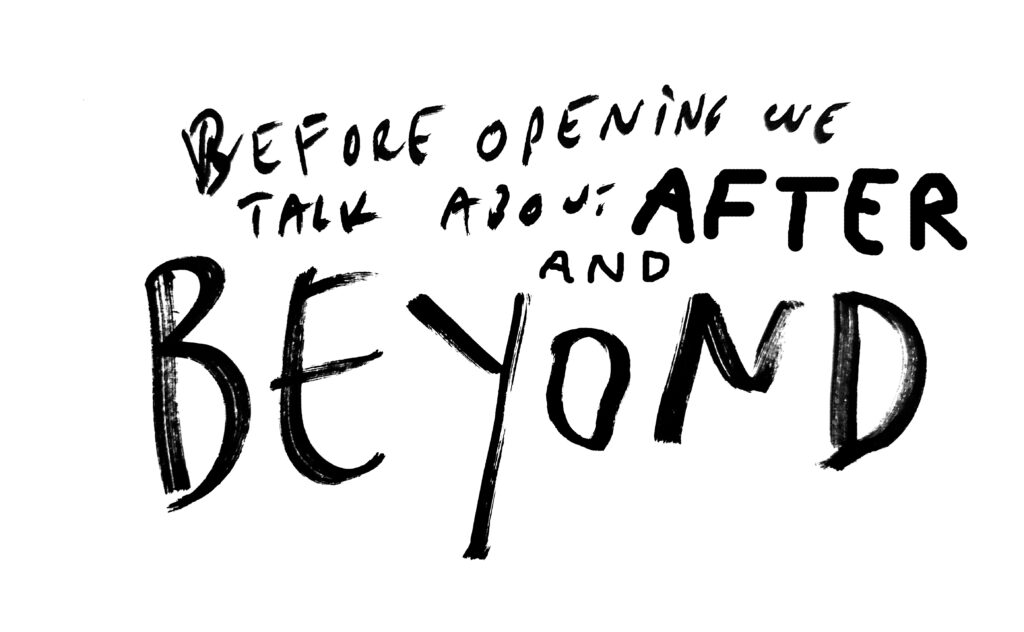 BEFORE OPENING WE
TALK ABOUT AFTER
AND
BEYOND